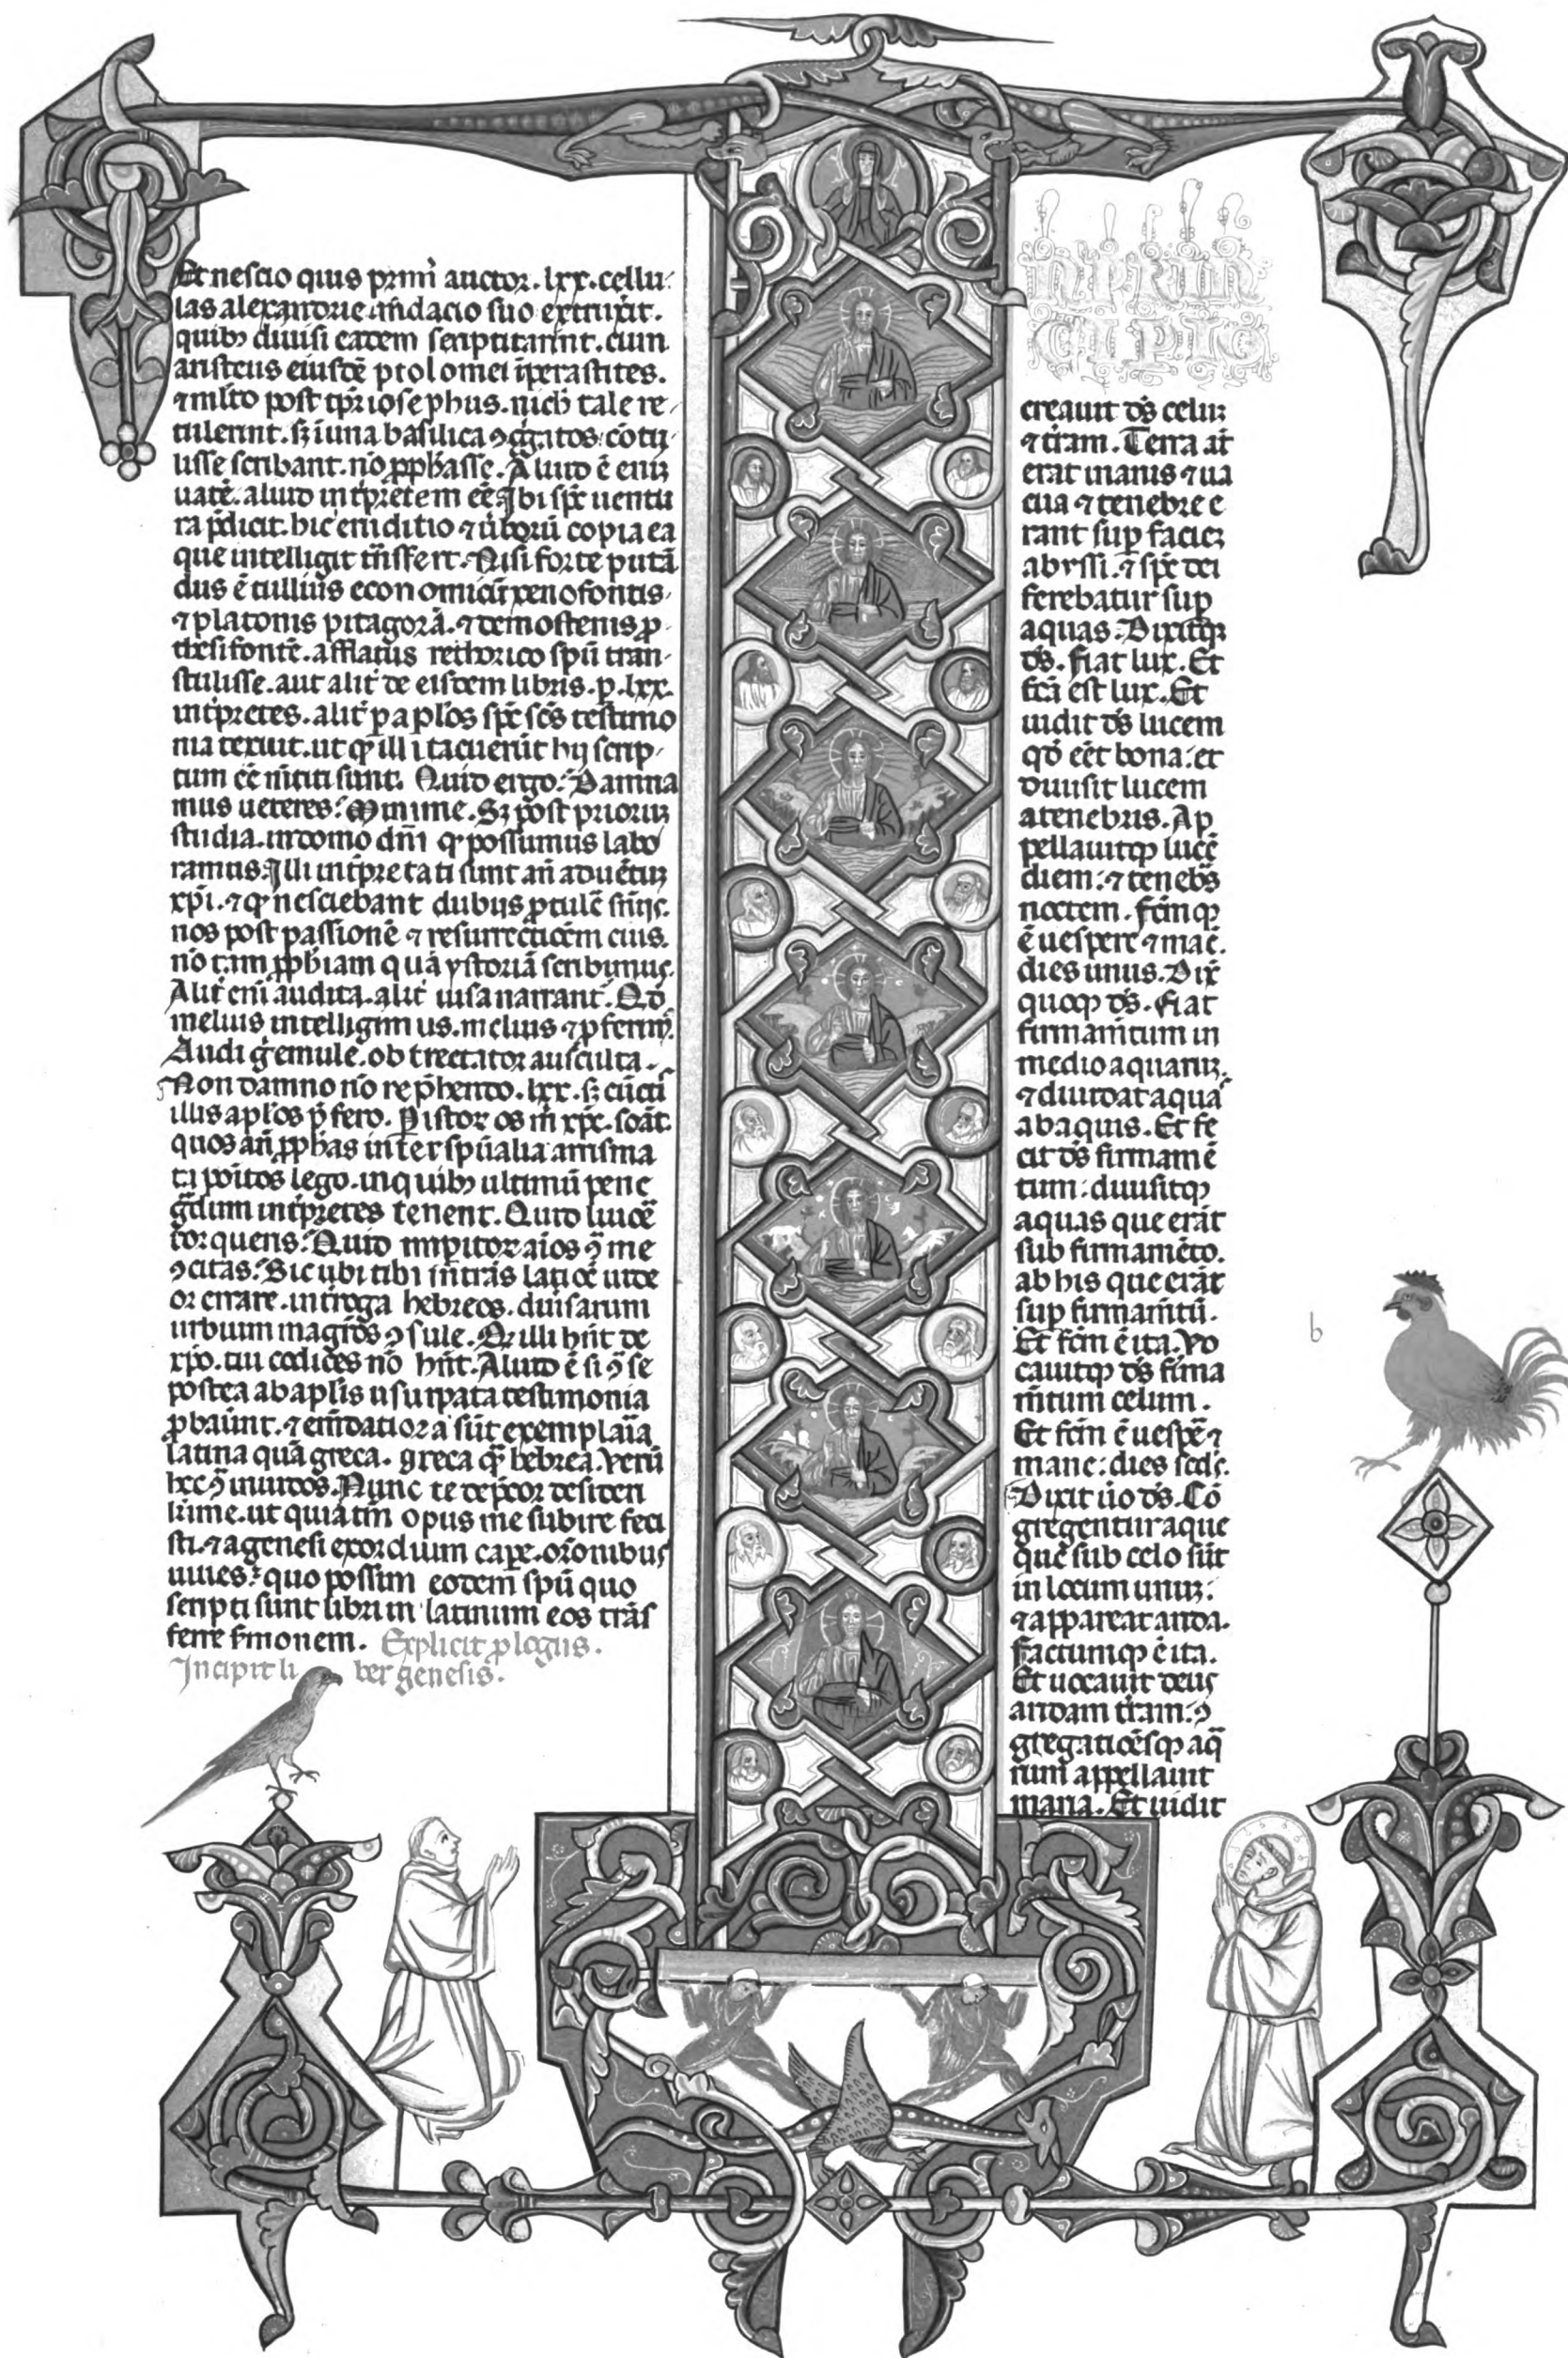 Et nescio quis prim̄ auctor. lxx. cellu-
las alexandrie m̄dacio suo extruxit.
quib; diuisi eadem scriptitarint. cum
aristeus eiusdē ptolomei īperastites.
⁊ m̄lto post tp̄r iosephus. nich̄ tale re-
tulerint. s; ī una basilica ꝯḡgatos cōtu-
lisse scribant. nō ꝓph̄asse. Aliud ē eniz
uatē. aliud int̄pretem eē. Ibi sp̄c uentu
ra p̄dicit. hic eruditio ⁊ ūborū copia ea
que intelligit t̄nsfert. Nisi forte putā
dus ē tullius economicū xenofontis
⁊ platonis pitagorā. ⁊ demostenis ꝓ
thesifontē. afflatus rethorico sp̄u tran-
stulisse. aut alit̄ de eisdem libris. p. lxx.
int̄pretes. alit̄ p ap̄los sp̄c sc̄s testimo
nia texuit. ut qd̄ illi tacuerūt hij scrip-
tum eē m̄titi sunt. Quid ergo? Damna
mus ueteres? Minime. S; post prioruz
studia. in domo dn̄i qd̄ possumus labo
ramus. Illi int̄pretati sunt an̄ aduētuz
xp̄i. ⁊ qd̄ nesciebant dubijs ꝓtulē sn̄ijs.
nos post passionē ⁊ resurrectiōem eius.
nō tam ꝓph̄iam quā ystoriā scribimus.
Alit̄ eni audita. alit̄ uisa narrant̄. Qd̄
melius intelligimus. melius ⁊ ꝓferim̄.
Audi ḡ emule. obtrectator ausculta.
Non damno nō rep̄hendo. lxx. s; cūcti
illis ap̄los p̄fero. P istor os m̄ xp̄c. soāt.
quos an̄ ꝓph̄as inter sp̄ualia carisma
ta poītos lego. in quib; ultimū pene
ḡdum int̄pretes tenent. Quid liuoē
torqueris? Quid imp̄itor aīos ꝯ me
ꝯcitas? Sicubi tibi in trās latiōe uide
or errare. int̄roga hebreos. diuisarum
urbium magrōs ꝯsule. Qd̄ illi hn̄t de
xp̄o. tui codices nō hn̄t. Aliud ē si ꝯ se
postea ab ap̄lis usurpata testimonia
ꝓbaūnt. ⁊ em̄datiora sūt exemplaīa
latina quā greca. greca qm̄ hebrea. Verū
hec ꝯ inuidos. Nunc te dep̄cor desideri
kīime. ut quia tm̄ opus me subire feci
sti. ⁊ a genesi exordium cape. orōnibus
iuues: quo possim eodem sp̄u quo
scripti sunt libri in latinum eos trās
ferre s̄monem. Explicit plogus.
Incipit liber genesis.
INPRIN
CIPIO
creauit ds̄ celuz
⁊ t̄ram. Terra at̄
erat inanis ⁊ ua
cua ⁊ tenebre e
rant sup faciez
abyssi. ⁊ sp̄c dei
ferebatur sup
aquas. Dixitqꝫ
ds̄. fiat lux. Et
fc̄a est lux. Et
uidit ds̄ lucem
qd̄ eēt bona: et
diuisit lucem
a tenebris. Ap
pellauitqꝫ lucē
diem: ⁊ tenebs̄
noctem. fc̄mqꝫ
ē uespere ⁊ māe.
dies unus. Dix̄
quoqꝫ ds̄. fiat
firmam̄tum in
medio aquaruz.
⁊ diuidat aquā
ab aquis. Et fe
cit ds̄ firmamē
tum: diuisitqꝫ
aquas que erāt
sub firmamēto.
ab his que erāt
sup firmam̄tū.
Et fc̄m ē ita. Vo
cauitqꝫ ds̄ firma
m̄tum celum.
Et fc̄m ē uespē ⁊
mane: dies scd̄s.
Dixit ūo ds̄. Cō
gregentur aque
que sub celo sūt
in locum unuz:
⁊ appareat arida.
factumqꝫ ē ita.
Et uocauit deus
aridam t̄ram: ꝯ
gregatiōesqꝫ aq̄
rum appellauit
maria. Et uidit
b